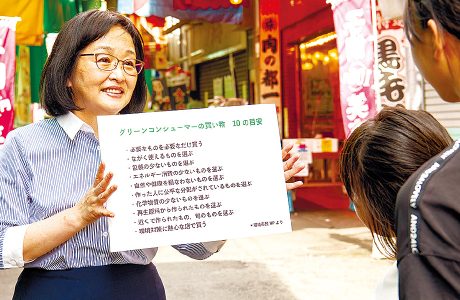 グリーンコンシューマーの買い物　10の目安
・必要なものを必要なだけ買う
・ながく使えるものを選ぶ
・包装の少ないものを選ぶ
・エネルギー消費の少ないものを選ぶ
・自然や健康を損なわないものを選ぶ
・作った人に公平な分配がされているものを選ぶ
・化学物質の少ないものを選ぶ
・再生原料から作られたものを選ぶ
・近くで作られたもの、旬のものを選ぶ
・環境対策に熱心な店で買う
肉の都
黒毛